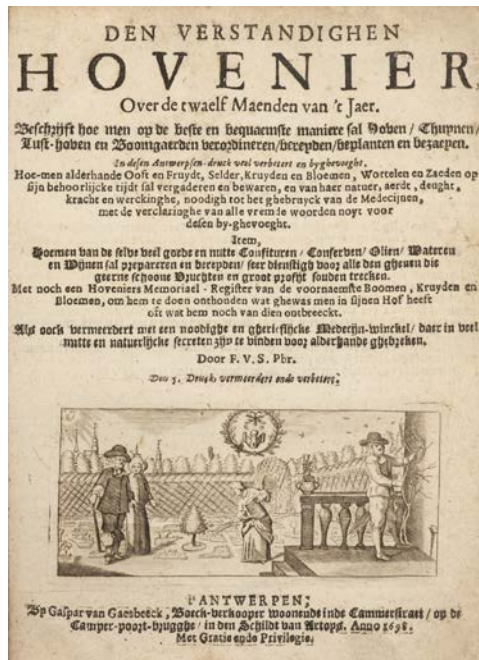 DEN VERSTANDIGHEN
HOVENIER,
Over de twaelf Maenden van 't Jaer.
Beschrijft hoe men op de beste en bequaemste maniere sal Hoven / Thuynen /
Lust-hoven en Boomgaerden verordineren / bereyden / beplanten en bezaeyen.
In desen Antwerpsen-druck veel verbetert en byghevoeght.
Hoe-men alderhande Ooft en Fruydt, Selder, Kruyden en Bloemen, Wortelen en Zaeden op
sijn behoorlijcke tijdt sal vergaderen en bewaren, en van haer natuer, aerdt, deught,
kracht en werckinghe, noodigh tot het ghebruyck van de Medecijnen,
met de verclaringhe van alle vremde woorden noyt voor
desen by-ghevoeght.
Item,
Hoemen van de selve veel goede en nutte Confituren / Conserven / Olien / Wateren
en Wijnen sal prepareren en bereyden / seer dienstigh voor alle den ghenen die
geerne schoone Vruchten en groot profijt souden trecken.
Met noch een Hoveniers Memoriael-Register van de voornaemste Boomen, Kruyden en
Bloemen, om hem te doen onthouden wat ghewas men in sijnen Hof heeft
oft wat hem noch van dien ontbreeckt.
Als oock vermeerdert met een noodighe en gherieflijcke Medecijn-winckel / daer in veel
nutte en natuerlijcke secreten zijn te vinden voor alderhande ghebreken.
Door F. V. S. Pbr.
Den 5. Druck, vermeerdert ende verbetert;
t'ANTWERPEN;
By Gaspar van Gaesbeeck, Boeck-verkooper woonende inde Cammerstraet / op de
Camper-poort-brugghe / in den Schildt van Artoys. Anno 1698.
Met Gratie ende Privilegie.